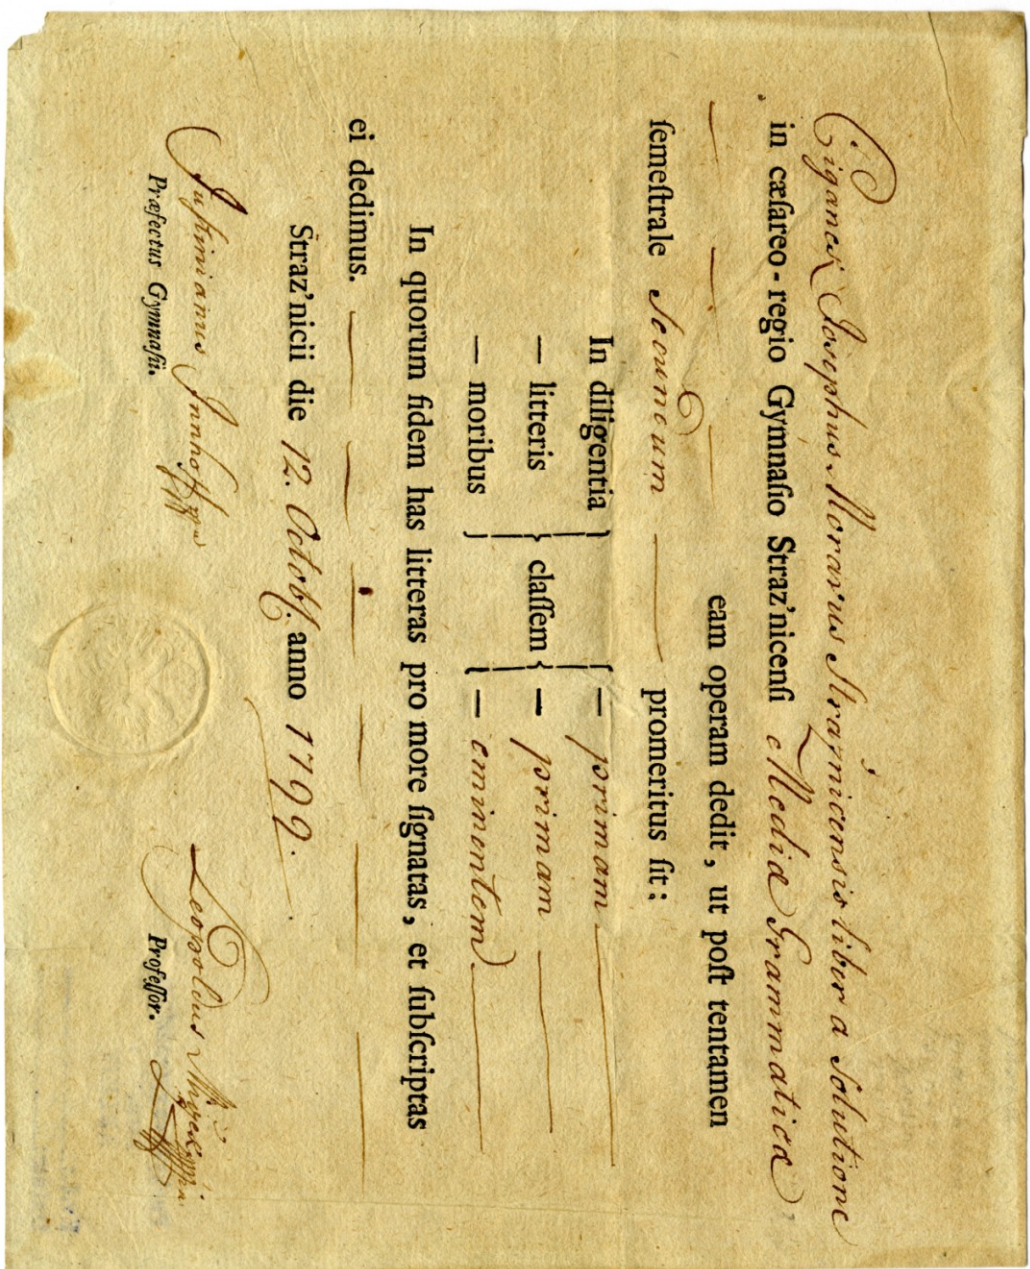 Ciganek Josephus Moravus Strażnicensis liber a Solutione
in cæſareo-regio Gymnaſio Straz'nicenſi Mediæ Grammaticæ
eam operam dedit, ut poſt tentamen
ſemeſtrale Secundum promeritus ſit:
In diligentia — primam
— litteris claſſem — primam
— moribus — eminentem
In quorum fidem has litteras pro more ſignatas, et ſubſcriptas
ei dedimus.
Straz'nicii die 12. Octobſ. anno 1799.
Justinianus
Leopoldus
Præfectus Gymnaſii.
Profeſſor.